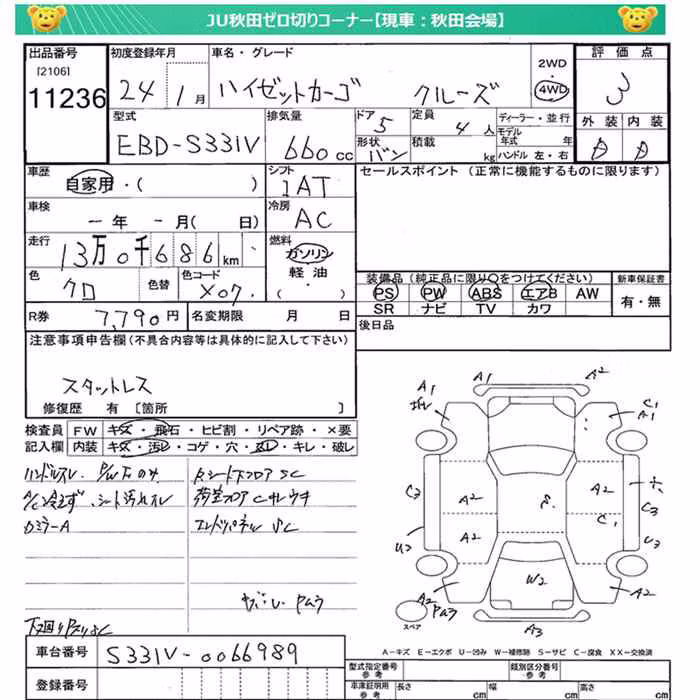 JU秋田ゼロ切りコーナー【現車：秋田会場】
出品番号
[2106]
11236
初度登録年月
24 1月
車名・グレード
ハイゼットカーゴ クルーズ
2WD
・
4WD
評価点
3
外装 内装
型式
EBD-S331V
排気量
660cc
ドア
5
定員
4人
形状
バン
積載
kg
ディーラー・並行
モデル年式 年
ハンドル 左・右
車歴
自家用・( )
シフト
IAT
セールスポイント（正常に機能するものに限ります）
車検
－年－月( 日)
冷房
AC
走行
13万0千686km
燃料
ガソリン
軽油・
( )
色
クロ
色替
色コード
X07
装備品（純正品に限り○をつけてください）
PS PW ABS エアB AW
SR ナビ TV カワ
新車保証書
有・無
R券
7,790円
名変期限 月 日
後日品
注意事項申告欄（不具合内容等は具体的に記入して下さい）
スタットレス
修復歴 有 [箇所 ]
検査員 FW キズ・飛石・ヒビ割・リペア跡・×要
記入欄 内装 キズ・汚レ・コゲ・穴・スレ・キレ・破レ
ハンドルスレ
A/C冷えず シート汚れスレ
荷室フロアCサレウキ
エンドパネル SC
PAラ
A1
A2
C1
A1
A2
A2
C1
A2
A2
C3
C3
U2
U3
W2
A2
PAラ
A2
A3
スペア
A－キズ E－エクボ U－凹み W－補修跡 S－サビ C－腐食 XX－交換済
車台番号
S331V-0066989
登録番号
型式指定番号
参考
類別区分番号
参考
車庫証明用
参考
長さ cm
幅 cm
高さ cm